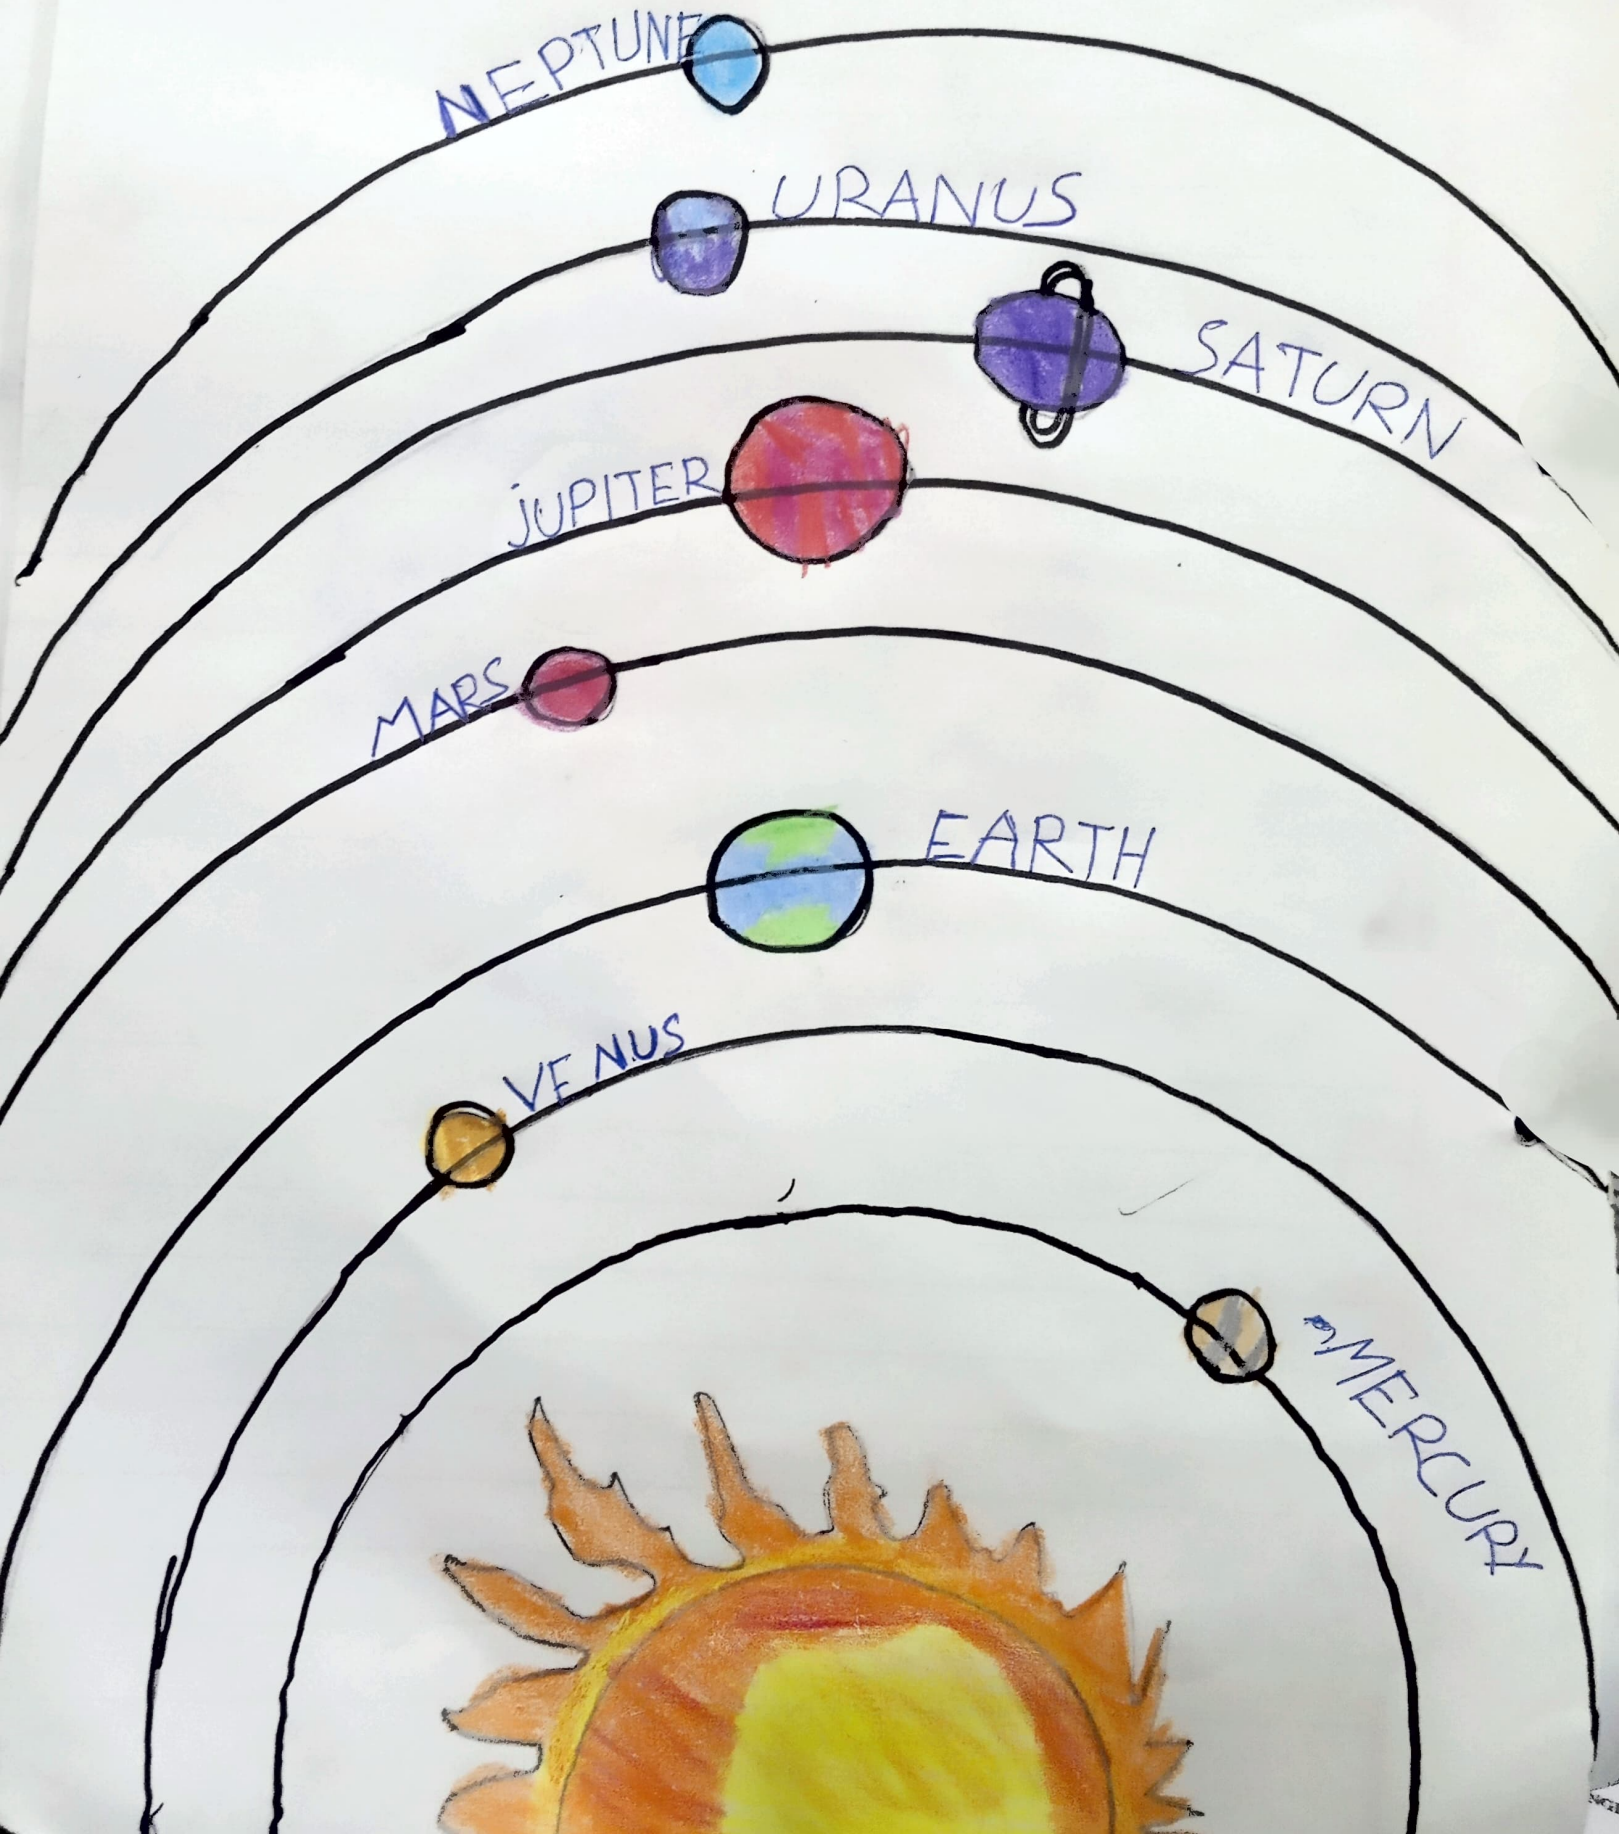 NEPTUNE
URANUS
SATURN
jUPITER
MARS
EARTH
VENUS
MERCURY